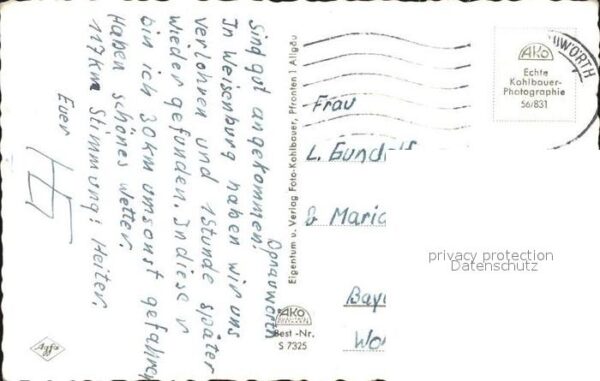 Sind gut angekommen.
In Weisenburg haben wir uns
verlohren und 1 Stunde später
wieder gefunden. In dieser
bin ich 30 km umsonst gefahren
Haben schönes Wetter.
117 km Stimmung: Heiter.
Euer
Donauwörth
Eigentum u. Verlag Foto-Kohlbauer, Pfronten / Allgäu
AKO
Best.-Nr.
S 7325
Agfa
AKO
Echte
Kohlbauer-
Photographie
56/831
UWÖRTH
Frau
L.
& Maria
privacy protection
Datenschutz
Bay
Wo